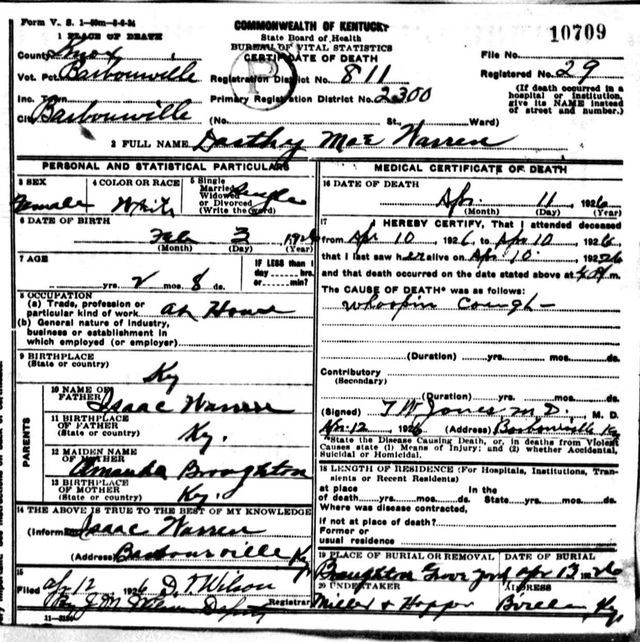 Form V. S. 1-50m-8-6-24
COMMONWEALTH OF KENTUCKY
State Board of Health
BUREAU OF VITAL STATISTICS
CERTIFICATE OF DEATH
10709
1 PLACE OF DEATH
County Knox
Vot. Pct. Barbourville
Inc. Town
City Barbourville
Registration District No. 811
Primary Registration District No. 2300
(No. St., Ward)
File No.
Registered No. 29
(If death occurred in a hospital or institution, give its NAME instead of street and number.)
2 FULL NAME Dorthy Mae Warren
PERSONAL AND STATISTICAL PARTICULARS
3 SEX Female
4 COLOR OR RACE White
5 Single Married Widowed or Divorced (Write the word) Single
6 DATE OF BIRTH
Feb 3 1926
(Month) (Day) (Year)
7 AGE
yrs. 2 mos. 8 ds.
IF LESS than 1 day hrs. or min.?
8 OCCUPATION
(a) Trade, profession or particular kind of work at Home
(b) General nature of Industry, business or establishment in which employed (or employer)
9 BIRTHPLACE
(State or country) Ky
PARENTS
10 NAME OF FATHER Isaac Warren
11 BIRTHPLACE OF FATHER
(State or country) Ky.
12 MAIDEN NAME OF MOTHER Amanda Broughton
13 BIRTHPLACE OF MOTHER
(State or country) Ky.
14 THE ABOVE IS TRUE TO THE BEST OF MY KNOWLEDGE
(Informant) Isaac Warren
(Address) Barbourville Ky.
15
Filed Ap 12 1926 D. T. Wilson
Registrar
MEDICAL CERTIFICATE OF DEATH
16 DATE OF DEATH
Apr. 11 1926
(Month) (Day) (Year)
17 I HEREBY CERTIFY, That I attended deceased
from Apr 10 1926, to Apr 10 1926,
that I last saw her alive on Apr. 10. 1926
and that death occurred on the date stated above at M.
The CAUSE OF DEATH* was as follows:
Whoopin Cough
(Duration) yrs. mos. ds.
Contributory
(Secondary)
(Duration) yrs. mos. ds.
(Signed) T W Jones M D., M. D.
Apr. 12 1926 (Address) Barbourville Ky
*State the Disease Causing Death, or, in deaths from Violent Causes state (1) Means of Injury; and (2) whether Accidental, Suicidal or Homicidal.
18 LENGTH OF RESIDENCE (For Hospitals, Institutions, Transients or Recent Residents)
at place of death yrs. mos. ds. In the State yrs. mos. ds.
Where was disease contracted, if not at place of death?
Former or usual residence
19 PLACE OF BURIAL OR REMOVAL Broughton Grove yard
DATE OF BURIAL Apr 13 1926
20 UNDERTAKER Miller & Hopper
ADDRESS Ky.